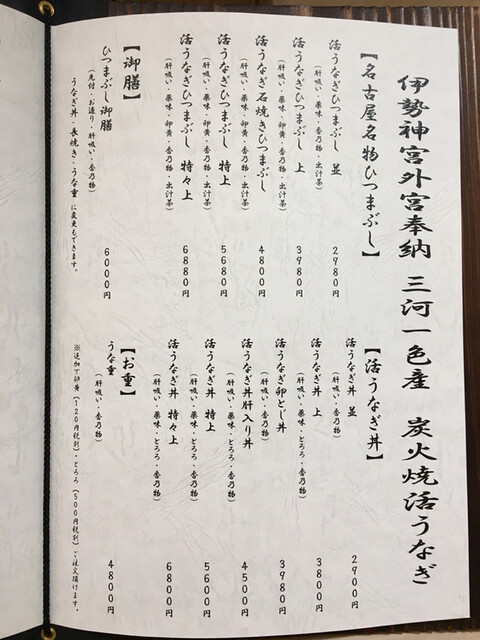 伊勢神宮外宮奉納 三河一色産 炭火焼活うなぎ
【名古屋名物ひつまぶし】
活うなぎひつまぶし 並 2980円
(肝吸い・薬味・香乃物・出汁茶)
活うなぎひつまぶし 上 3980円
(肝吸い・薬味・香乃物・出汁茶)
活うなぎ石焼きひつまぶし 4800円
(肝吸い・薬味・卵黄・香乃物・出汁茶)
活うなぎひつまぶし 特上 5680円
(肝吸い・薬味・卵黄・香乃物・出汁茶)
活うなぎひつまぶし 特々上 6880円
(肝吸い・薬味・卵黄・香乃物・出汁茶)
【御膳】
ひつまぶし御膳 6000円
(先付・お造り・肝吸い・香乃物)
うなぎ丼・長焼き・うな重 に変更もできます。
【活うなぎ丼】
活うなぎ丼 並 2900円
(肝吸い・香乃物)
活うなぎ丼 上 3800円
(肝吸い・薬味・とろろ・香乃物)
活うなぎ卵とじ丼 3980円
(肝吸い・香乃物)
活うなぎ丼肝入り丼 4500円
(肝吸い・薬味・とろろ・香乃物)
活うなぎ丼 特上 5600円
(肝吸い・薬味・とろろ・香乃物)
活うなぎ丼 特々上 6800円
(肝吸い・薬味・とろろ・香乃物)
【お重】
うな重 4800円
(肝吸い・香乃物)
※追加で卵黄(120円税別)・とろろ(500円税別)ご注文頂けます。